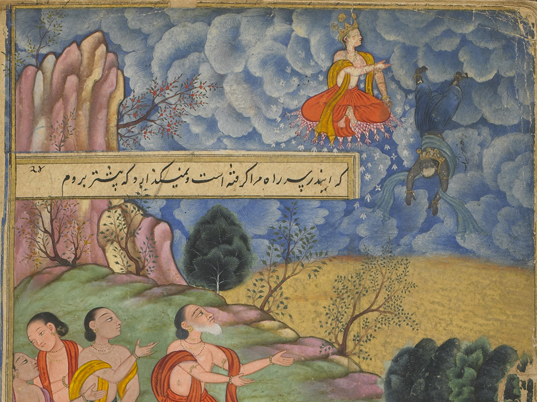 که ایندر سر راه مرا گرفته است و نمیگذارد که پیشتر بروم